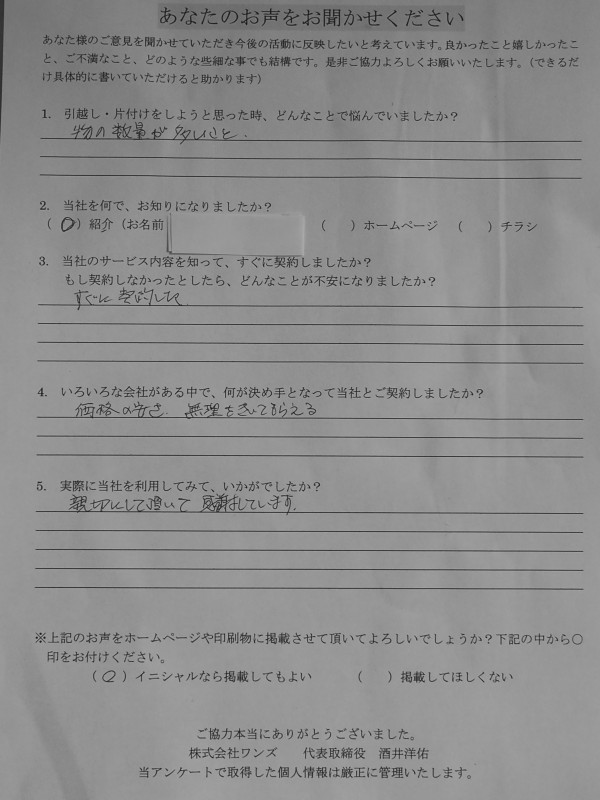 あなたのお声をお聞かせください
あなた様のご意見を聞かせていただき今後の活動に反映したいと考えています。良かったこと嬉しかったこ
と、ご不満なこと、どのような些細な事でも結構です。是非ご協力よろしくお願いいたします。（できるだ
け具体的に書いていただけると助かります）
1. 引越し・片付けをしようと思った時、どんなことで悩んでいましたか？
物の数量が多いこと.
2. 当社を何で、お知りになりましたか？
（○）紹介（お名前 （ ）ホームページ （ ）チラシ
3. 当社のサービス内容を知って、すぐに契約しましたか？
もし契約しなかったとしたら、どんなことが不安になりましたか？
すぐに契約した
4. いろいろな会社がある中で、何が決め手となって当社とご契約しましたか？
価格の安さ 無理をきいてもらえる
5. 実際に当社を利用してみて、いかがでしたか？
親切にして頂いて 感謝しています.
※上記のお声をホームページや印刷物に掲載させて頂いてよろしいでしょうか？下記の中から○
印をお付けください。
（○）イニシャルなら掲載してもよい （ ）掲載してほしくない
ご協力本当にありがとうございました。
株式会社ワンズ 代表取締役 酒井洋佑
当アンケートで取得した個人情報は厳正に管理いたします。